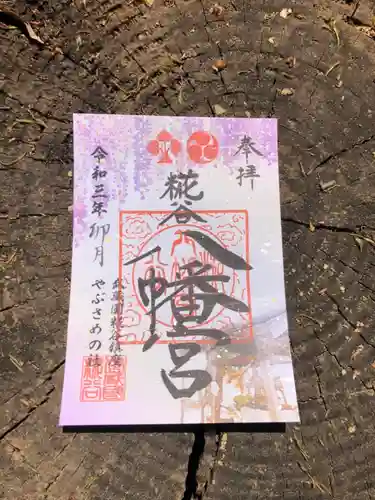 奉拝
糀谷
八幡宮
令和三年卯月
武蔵国糀谷鎮座
やぶさめの社